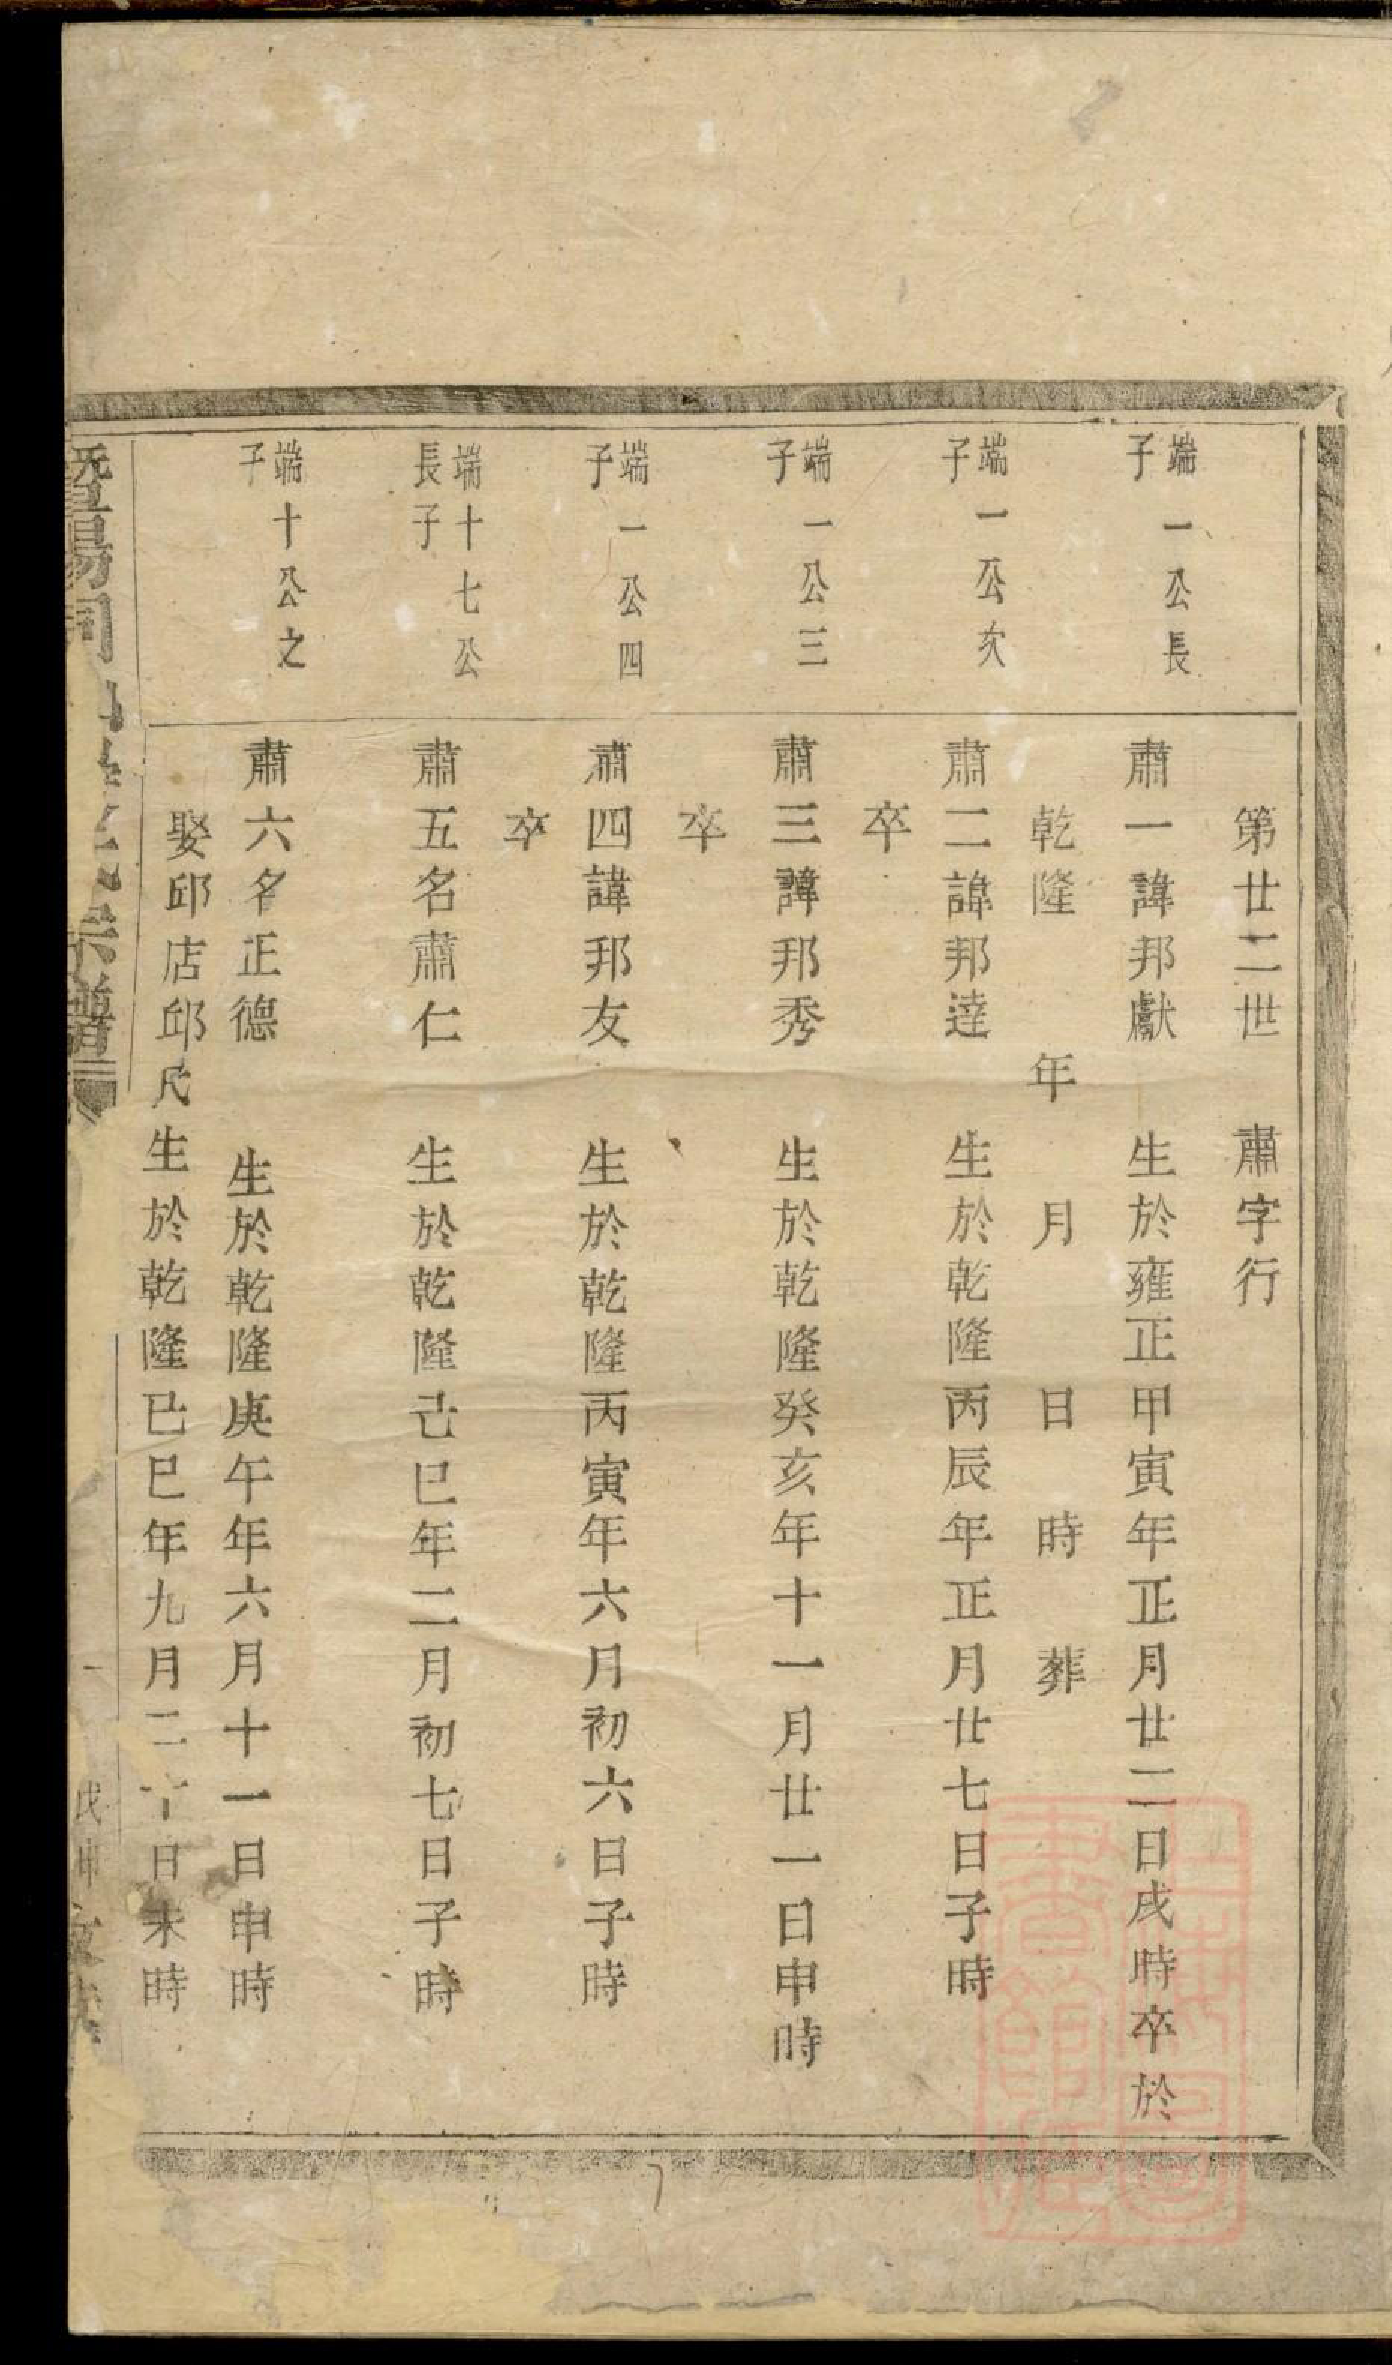 第廿二世 肅字行
端一公長
子
肅一諱邦獻 生於雍正甲寅年正月廿二日戌時卒於
乾隆 年 月 日 時 葬
端一公次
子
肅二諱邦達 生於乾隆丙辰年正月廿七日子時
卒
端一公三
子
肅三諱邦秀 生於乾隆癸亥年十一月廿一日申時
卒
端一公四
子
肅四諱邦友 生於乾隆丙寅年六月初六日子時
卒
端十七公
長子
肅五名肅仁 生於乾隆己巳年二月初七日子時
端十公之
子
肅六名正德 生於乾隆庚午年六月十一日申時
娶邱店邱氏生於乾隆己巳年九月二十日未時
暨陽同山 宗譜
一
戊申